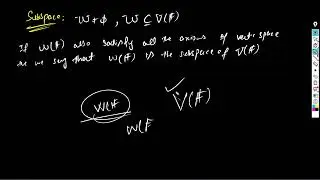 Subspace: W ≠ ϕ , W ⊆ V(F)
If W(F) also satisfy all the axioms of vector space
we say that W(F) is the subspace of V(F)
W(F) V(F)
W(F